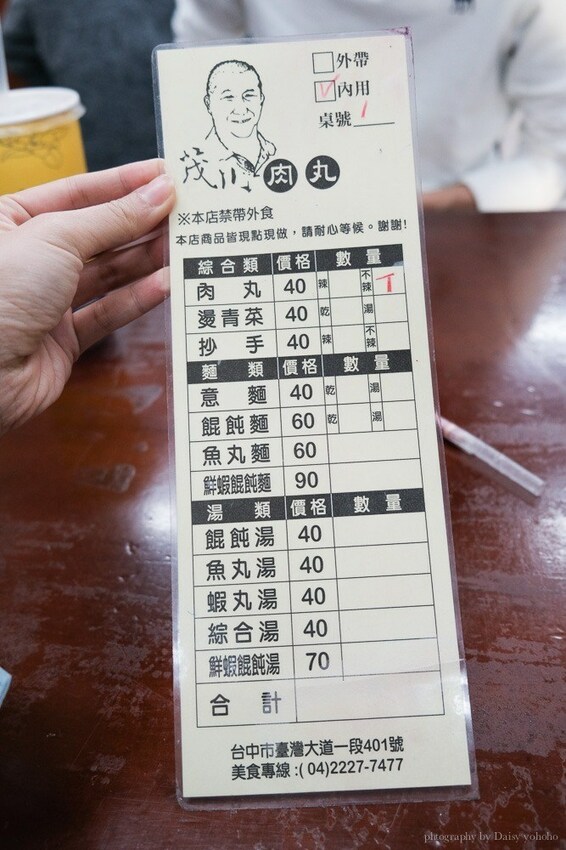 □外帶
☑內用
桌號 1
茂川肉丸
※本店禁帶外食
本店商品皆現點現做，請耐心等候。謝謝!
綜合類 價格 數量
肉丸 40 辣 不辣 T
燙青菜 40 乾 湯
抄手 40 辣 不辣
麵類 價格 數量
意麵 40 乾 湯
餛飩麵 60 乾 湯
魚丸麵 60
鮮蝦餛飩麵 90
湯類 價格 數量
餛飩湯 40
魚丸湯 40
蝦丸湯 40
綜合湯 40
鮮蝦餛飩湯 70
合計
台中市臺灣大道一段401號
美食專線:(04)2227-7477
photography by Daisy yohoho